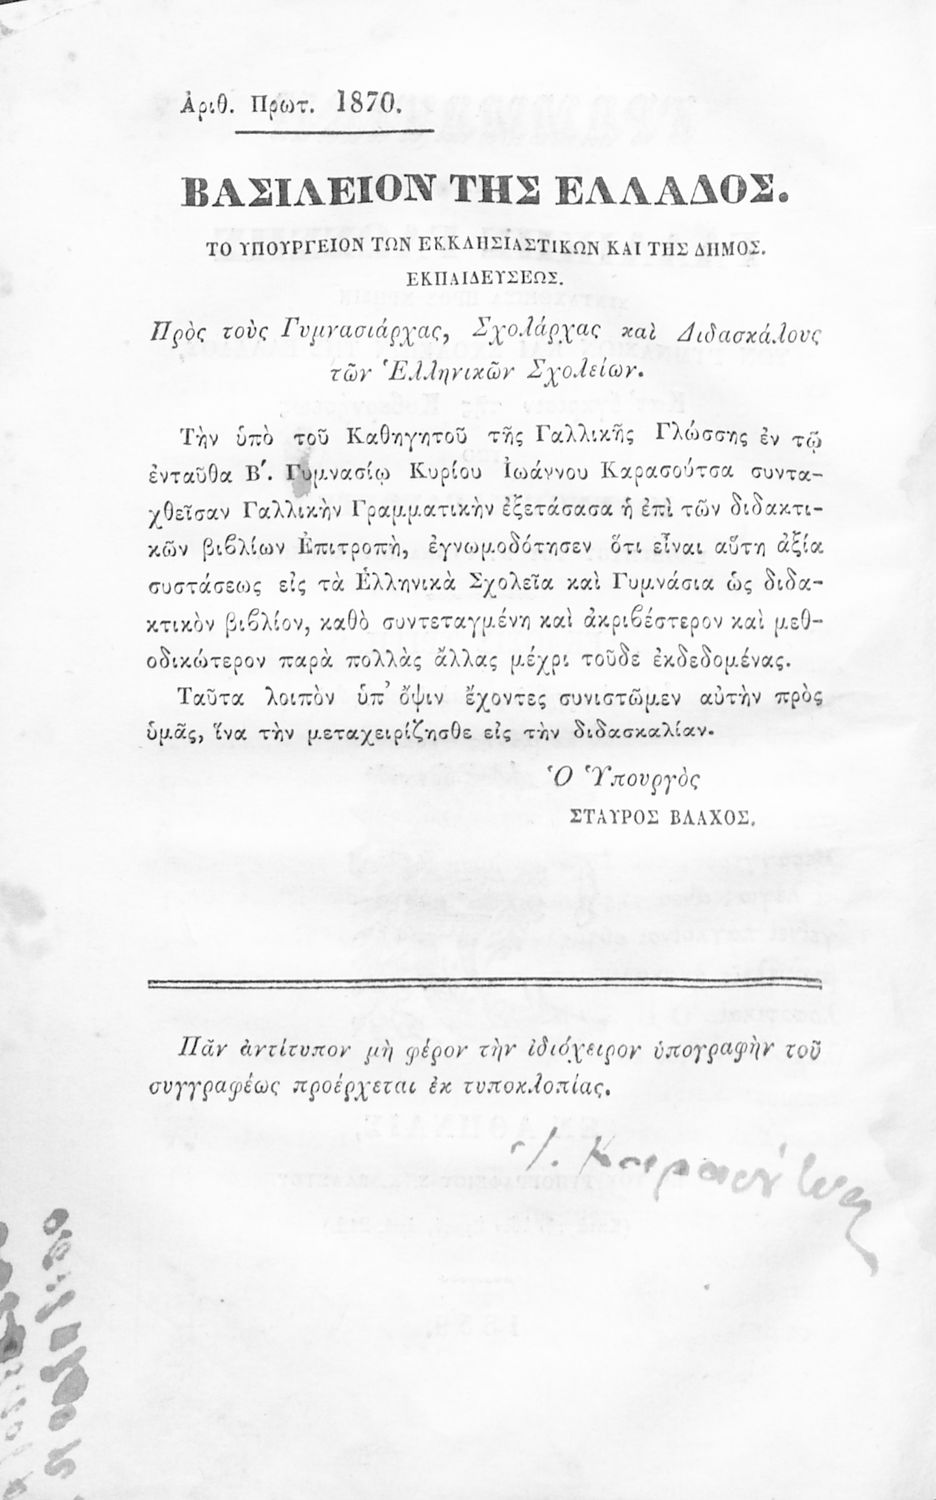 Ἀριθ. Πρωτ. 1870.
ΒΑΣΙΛΕΙΟΝ ΤΗΣ ΕΛΛΑΔΟΣ.
ΤΟ ΥΠΟΥΡΓΕΙΟΝ ΤΩΝ ΕΚΚΛΗΣΙΑΣΤΙΚΩΝ ΚΑΙ ΤΗΣ ΔΗΜΟΣ.
ΕΚΠΑΙΔΕΥΣΕΩΣ.
Πρὸς τοὺς Γυμνασιάρχας, Σχολάρχας καὶ Διδασκάλους
τῶν Ἑλληνικῶν Σχολείων.
Τὴν ὑπὸ τοῦ Καθηγητοῦ τῆς Γαλλικῆς Γλώσσης ἐν τῷ
ἐνταῦθα Β΄. Γυμνασίῳ Κυρίου Ἰωάννου Καρασούτσα συντα-
χθεῖσαν Γαλλικὴν Γραμματικὴν ἐξετάσασα ἡ ἐπὶ τῶν διδακτι-
κῶν βιβλίων Ἐπιτροπὴ, ἐγνωμοδότησεν ὅτι εἶναι αὕτη ἀξία
συστάσεως εἰς τὰ Ἑλληνικὰ Σχολεῖα καὶ Γυμνάσια ὡς διδα-
κτικὸν βιβλίον, καθὸ συντεταγμένη καὶ ἀκριβέστερον καὶ μεθ-
οδικώτερον παρὰ πολλὰς ἄλλας μέχρι τοῦδε ἐκδεδομένας.
Ταῦτα λοιπὸν ὑπ' ὄψιν ἔχοντες συνιστῶμεν αὐτὴν πρὸς
ὑμᾶς, ἵνα τὴν μεταχειρίζησθε εἰς τὴν διδασκαλίαν.
Ὁ Ὑπουργὸς
ΣΤΑΥΡΟΣ ΒΛΑΧΟΣ.
Πᾶν ἀντίτυπον μὴ φέρον τὴν ἰδιόχειρον ὑπογραφὴν τοῦ
συγγραφέως προέρχεται ἐκ τυποκλοπίας.
Ι. Καρασούτσας